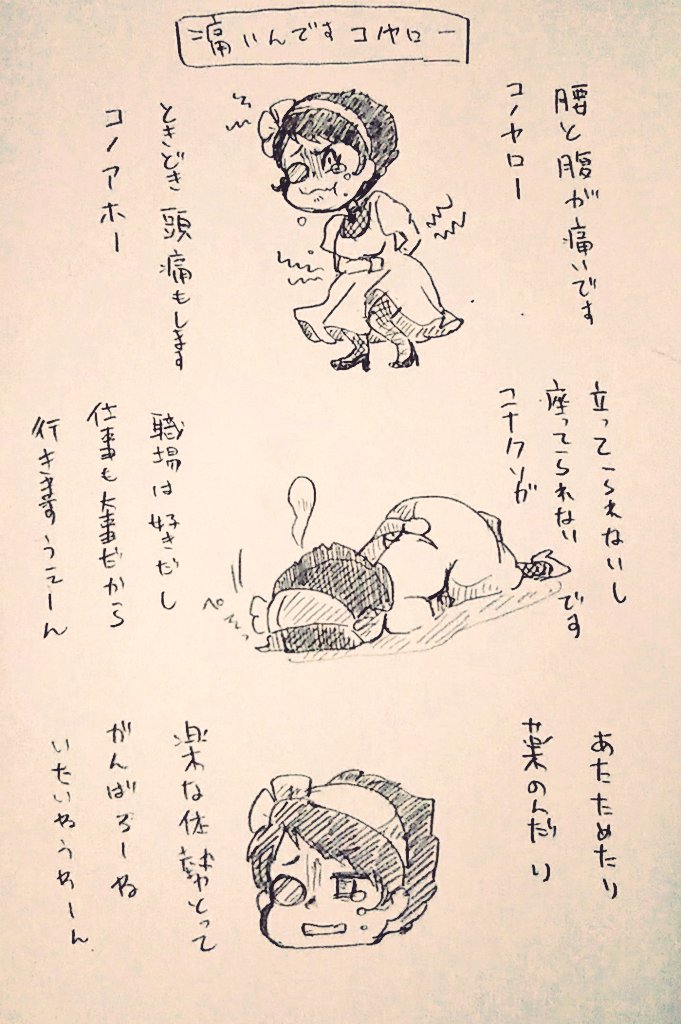 痛いんですコノヤロー
腰と腹が痛いです
コノヤロー
ときどき頭痛もします
コノアホー
立ってられないし
座ってられないです
コナクソが
職場は好きだし
仕事も大事だから
行きますうえーん
ぺしょ
あたためたり
薬のんだり
楽な体勢とって
がんばろーね
いたいようわーん